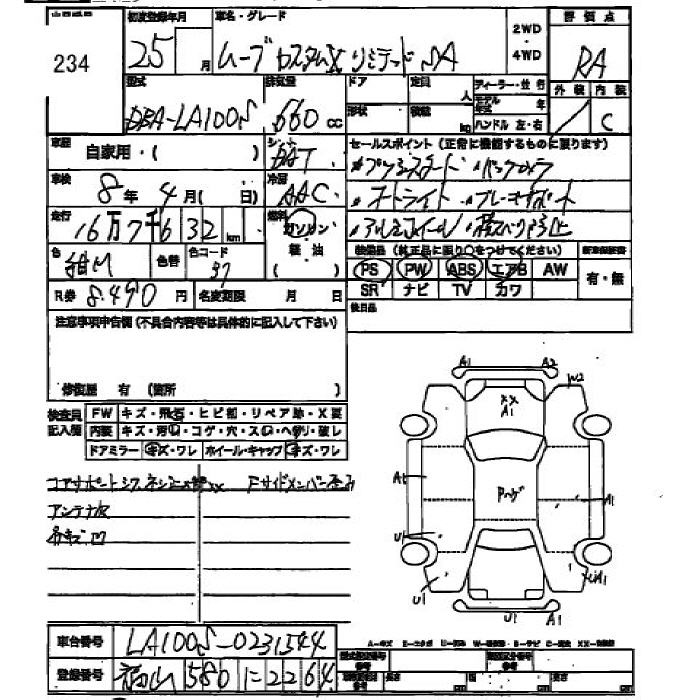 234
初度登録年月
25 月
車名・グレード
ムーブ カスタムX リミテッド SA
2WD
・
4WD
評価点
RA
外装 内装
C
型式
DBA-LA100S
排気量
660 cc
ドア
形状
定員 人
積載 kg
ディーラー・並行
モデル年式 年
ハンドル 左・右
車歴
自家用・( )
シフト
車検
8 年 4 月 ( 日)
冷房
AAC
走行
16万7千632 km
燃料
ガソリン
軽油
( )
色
色替
色コード
R券 8,490 円
名変期限 月 日
セールスポイント(正常に機能するものに限ります)
・プッシュスタート ・バックカメラ
・オートライト ・ブレーキサポート
・アルミホイール ・横スベリ防止
装備品(純正品に限り○をつけてください)
PS PW ABS エアB AW
SR ナビ TV カワ
新車保証書
有・無
後日品
注意事項申告欄(不具合内容等は具体的に記入して下さい)
修復歴 有 (箇所 )
検査員記入欄
FW キズ・飛石・ヒビ割・リペア跡・X要
内装 キズ・汚レ・コゲ・穴・スレ・ヘタリ・破レ
ドアミラー キズ・ワレ ホイール・キャップ キズ・ワレ
コアサポート
アンテナ欠
A1 A2
W2
XX
A1
A1
A1
U1
U1
UA1
U1 A1
車台番号 LA100S-0231544
登録番号 福山 580 に 2264
長さ cm
幅 cm
高さ cm